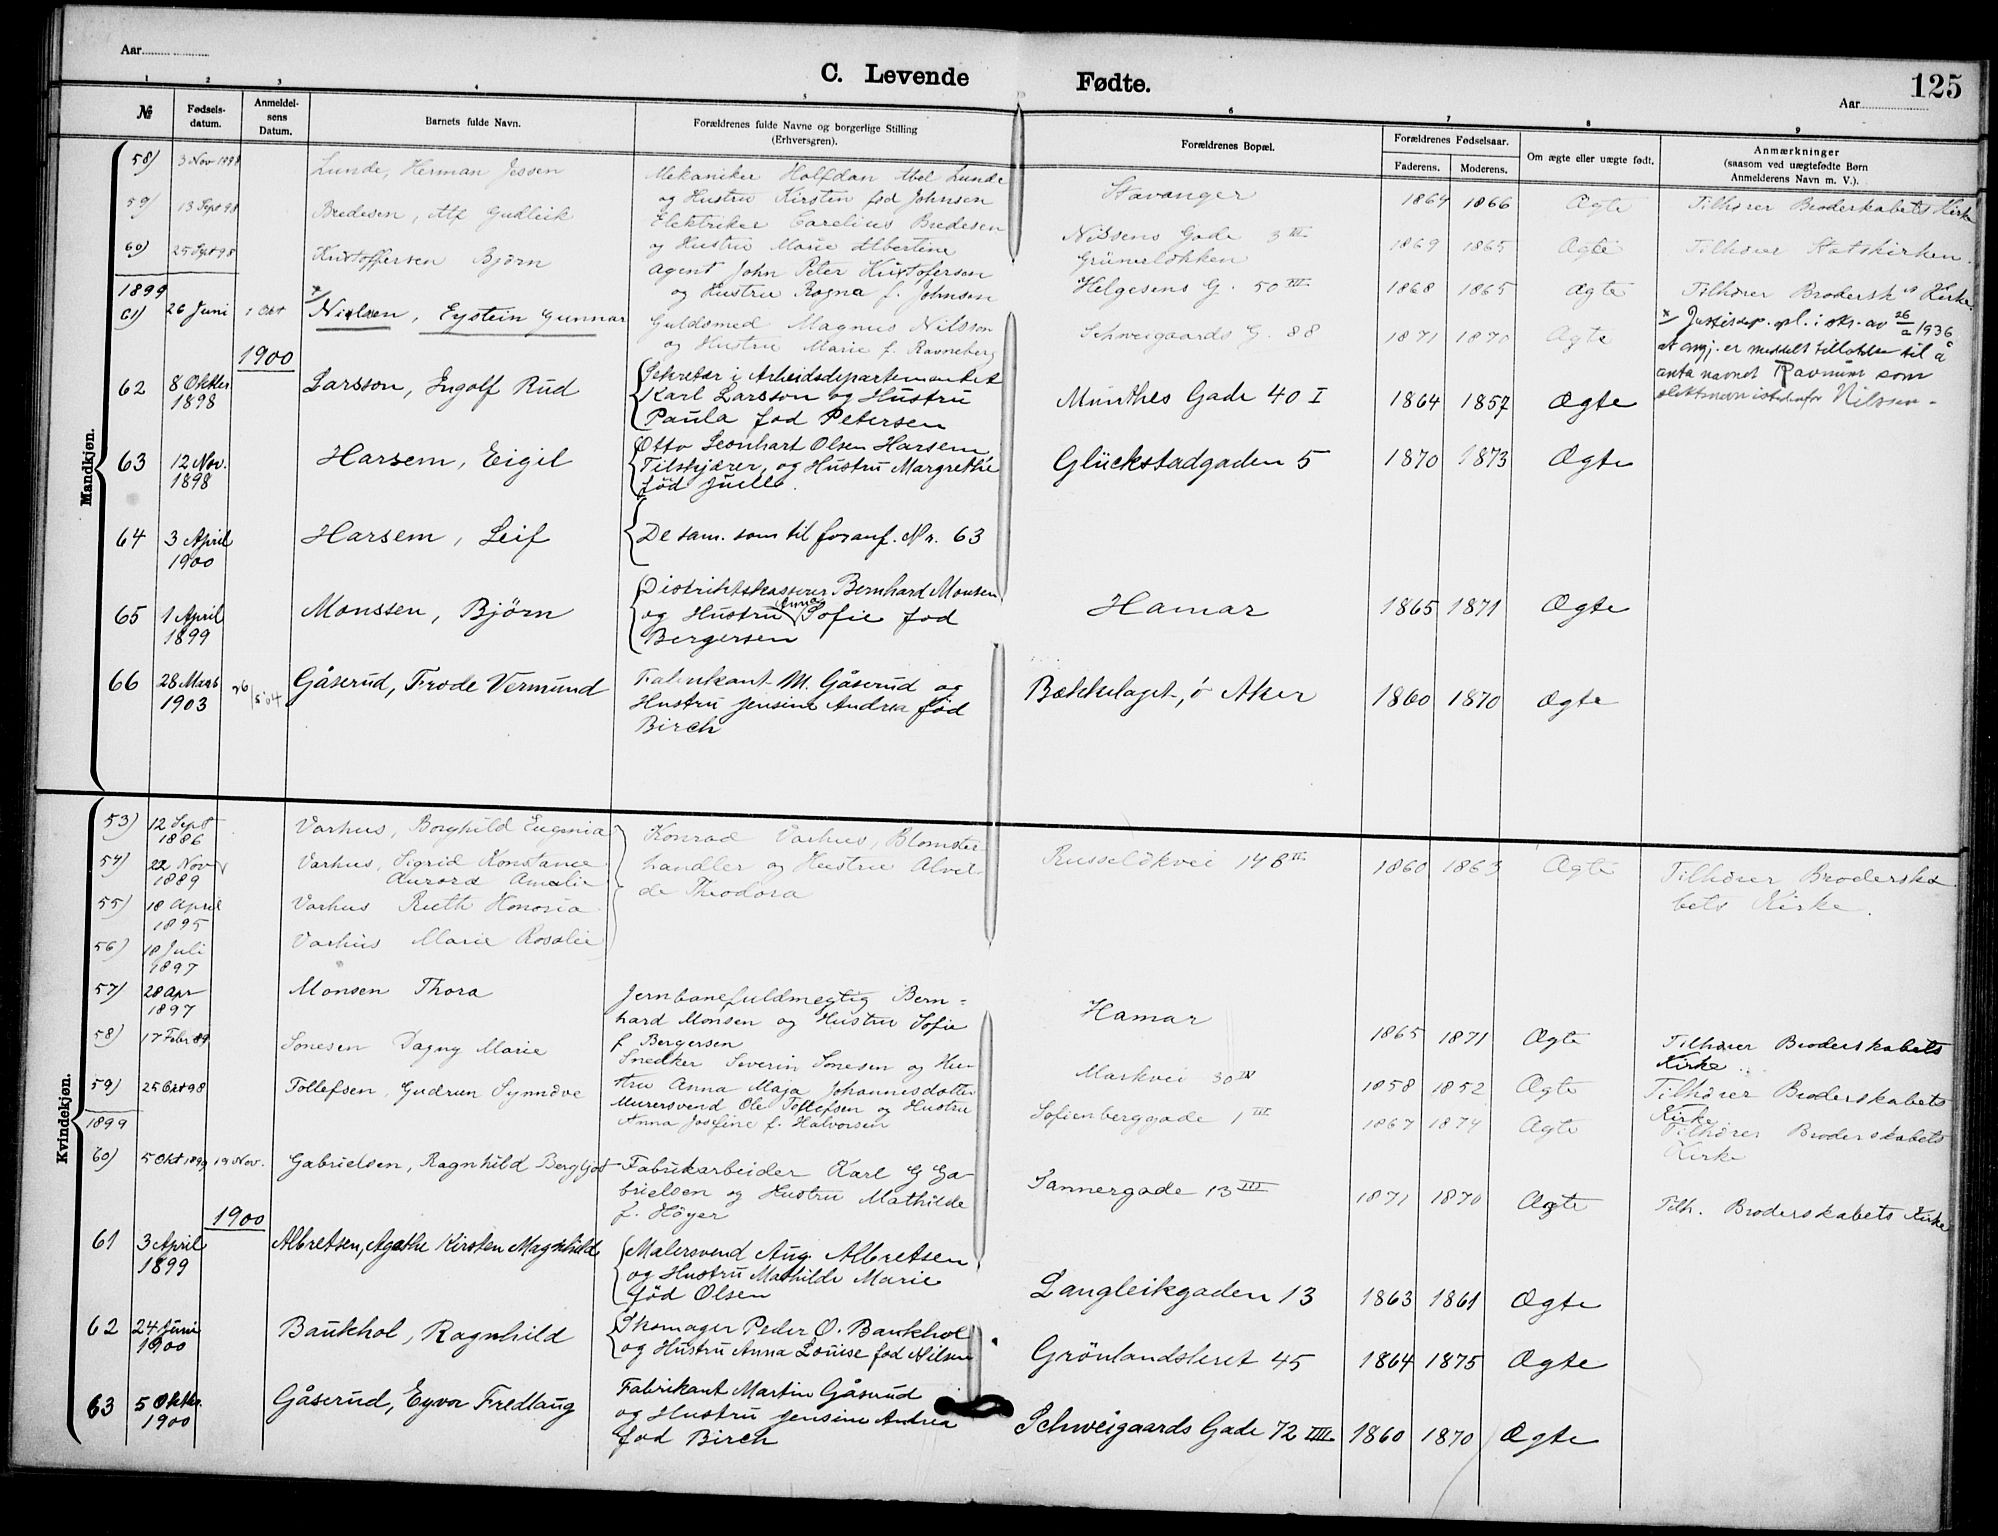 Aar
C. Levende Fødte.
125
Aar
1 2 3 4 5 6 7 8 9
№
Fødsels-datum.
Anmeldel-sens Datum.
Barnets fulde Navn.
Forældrenes fulde Navne og borgerlige Stilling
(Erhversgren).
Forældrenes Bopæl.
Forældrenes Fødselsaar.
Faderens. Moderens.
Om ægte eller uægte født.
Anmærkninger
(saasom ved uægtefødte Børn
Anmelderens Navn m. V.).
Mandkjøn.
58) 3 Nov 1898 Lunde, Herman Jessen Mekaniker Halfdan Abel Lunde
og Hustru Kirsten fød Johnsen Stavanger 1864 1866 Ægte Tilhører Broderskabets Kirke
59) 13 Sept 98 Bredesen, Alf Gudleik Elektriker Carelius Bredesen
og Hustru Marie Albertine Nilsens Gade 3 III Grünerløkken 1869 1865 Ægte Tilhører Statskirken.
60) 25 Sept 98 Kristoffersen Bjørn Agent John Peter Kristofersen
og Hustru Ragna f. Johnsen Helgesens G. 50 III 1868 1865 Ægte Tilhører Brodersk Kirke
1899
61) 26 Juni 1 Okt x Nielsen, Eystein Gunnar Guldsmed Magnus Nilsson
og Hustru Marie f. Ravneberg Schweigaards G. 88 1871 1870 Ægte
x Justisdep. i skr. av 1936
at er meddelt tillatelse til å
anta navnet Ravnum som
slektsnavn istedenfor Nilssen.
1900
62 8 Oktbr 1898 Larsson, Ingolf Rud Sekretær i Arbeidsdepartementet
Karl Larsson og Hustru
Paula fød Petersen Munthes Gade 40 I 1864 1857 Ægte
63 12 Nov. 1898 Harsem, Eigil Otto Leonhart Olsen Harsem,
Tilskjærer, og Hustru Margrethe
fød Juell. Glückstadgaden 5 1870 1873 Ægte
64 3 April 1900 Harsem, Leif De sam. som til foranf. Nr. 63
65 1 April 1899 Monssen, Bjørn Distriktskasserer Bernhard Monsen
og Hustru Anna Sofie fød
Bergersen Hamar 1865 1871 Ægte
66 28 1903 26/5 04 Gåserud, Frode Vermund Fabrikant M. Gåserud og
Hustru Jensine Andrea fød
Birch Bækkelaget, Aker 1860 1870 Ægte
Kvindekjøn.
53) 12 Sept 1886 Varhus, Borghild Eugenia Konrad Varhus, Blomster
54) 22 Nov 1889 Varhus, Sigrid Konstance handler og Hustru Alvil-
Aurora Amalie de Theodora
Russeløkvei 148 II 1860 1863 Ægte Tilhører Broderska
bets Kirke.
55) 18 April 1895 Varhus Ruth Honoria
56) 18 Juli 1897 Varhus Marie Rosalie
57) 28 Apr 1897 Monsen Thora Jernbanefuldmegtig Bern=
hard Monsen og Hustru Sofie
f Bergersen Hamar 1865 1871 Ægte Tilhører Broderskabets
Kirke
58) 17 Febr 89 Sonesen Dagny Marie Snedker Severin Sonesen og Hu-
stru Anna Maja Johannesdotter Markvei 30 IV 1858 1852 Ægte Tilhører Broderskabets
Kirke
59) 25 Okt 98 Tollefsen, Gudrun Synnøve Murersvend Ole Tollefsen og Hustru
Anna Josefine f. Halvorsen Sofienberggade 1 III 1867 1874 Ægte Tilhører Broderskabets
Kirke
1899
60) 5 Okt 1899 19 Nov. Gabrielsen, Ragnhild Bergljot Fabrikarbeider Karl G Ga-
brielsen og Hustru Mathilde
f. Höyer Sannergade 13 III 1871 1870 Ægte Tilh. Broderskabets Kirke
1900
61 3 April 1899 Albretsen, Agathe Kirsten Magnhild Malersvend Aug. Albretsen
og Hustru Mathilde Marie
fød Olsen Langleikgaden 13 1863 1861 Ægte
62 24 Juni 1900 Baukhol, Ragnhild Skomager Peder O. Baukhol
og Hustru Anna Louise fød Nilsen Grönlandsleret 45 1864 1875 Ægte
63 5 Oktbr. 1900 Gåserud, Eyvor Fredlaug Fabrikant Martin Gåserud
og Hustru Jensine Andrea
fød Birch Schweigaards Gade 72 IIII 1860 1870 Ægte